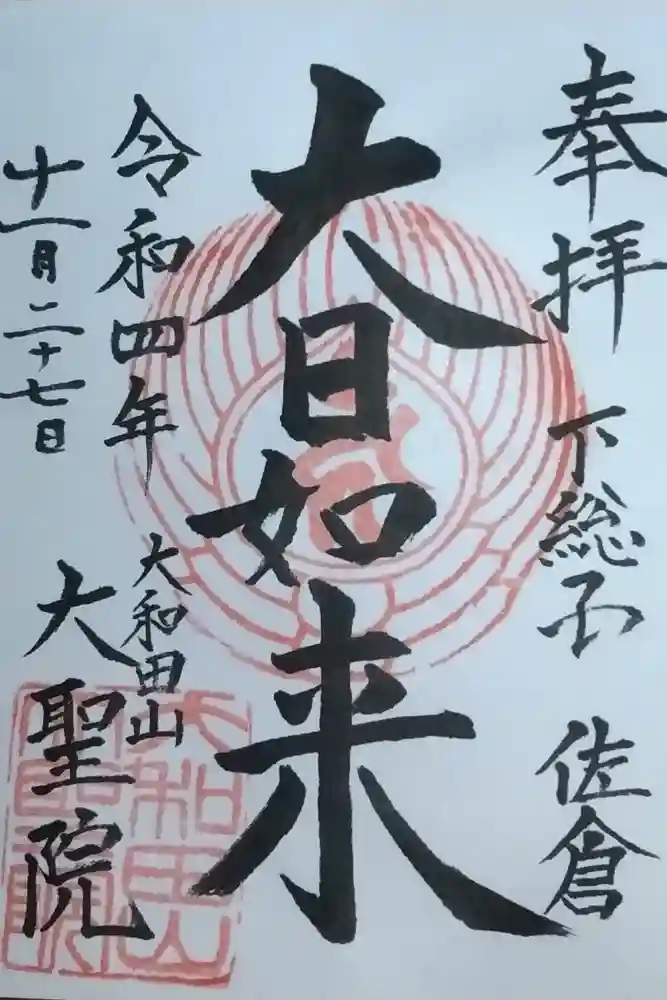 奉拝
下総国
佐倉
大日如来
令和四年
十一月二十七日
大和田山
大聖院
大和田山
大聖院